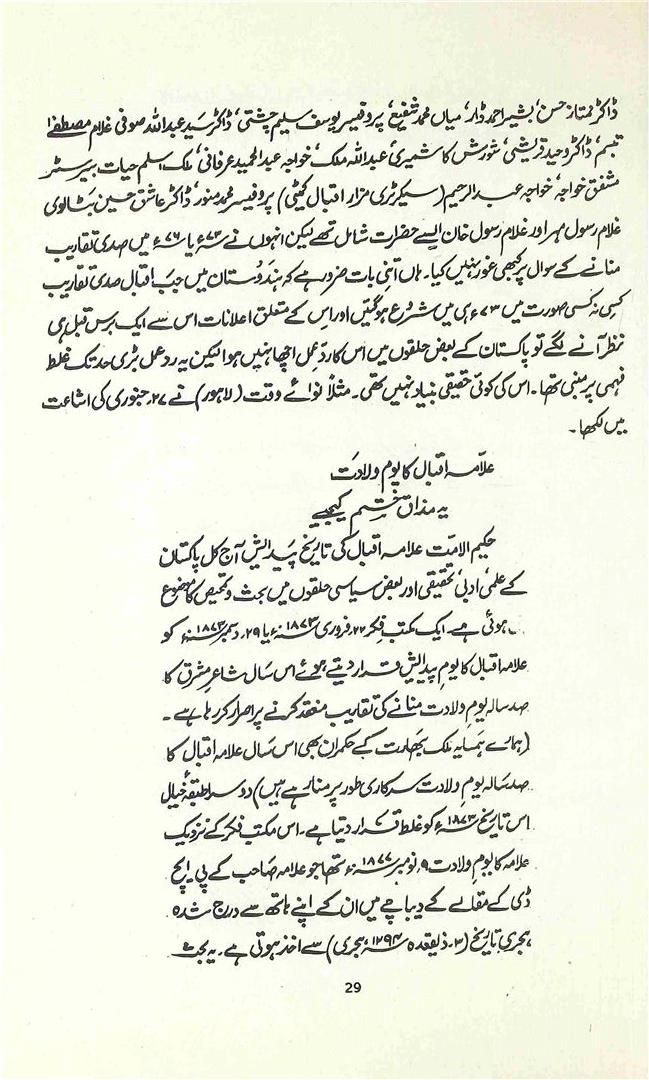 ڈاکٹر ممتاز حسن، بشیر احمد ڈار، میاں محمد شفیع، پروفیسر یوسف سلیم چشتی، ڈاکٹر سید عبداللہ صوفی غلام مصطفےٰ
تبسم، ڈاکٹر وحید قریشی، شورش کاشمیری، عبداللہ ملک، خواجہ عبدالحمید عرفانی، ملک اسلم حیات بیرسٹر
مشفق خواجہ، خواجہ عبدالرحیم (سیکرٹری مزار اقبال کمیٹی) پروفیسر محمد منور، ڈاکٹر عاشق حسین بٹالوی
غلام رسول مہر اور غلام رسول خان ایسے حضرات شامل تھے لیکن انہوں نے ۷۳ء یا ۷۶ء میں صدی تقاریب
منانے کے سوال پر کبھی غور نہیں کیا۔ ہاں اتنی بات ضرور ہے کہ ہندوستان میں جب اقبال صدی تقاریب
کسی نہ کسی صورت میں ۷۳ء ہی میں شروع ہوگئیں اور اس کے متعلق اعلانات اس سے ایک برس قبل ہی
نظر آنے لگے تو پاکستان کے بعض حلقوں میں اس کا ردِ عمل اچھا نہیں ہوا لیکن یہ ردعمل بڑی حد تک غلط
فہمی پر مبنی تھا۔ اس کی کوئی حقیقی بنیاد نہیں تھی۔ مثلاً نوائے وقت (لاہور) نے ۲۷ جنوری کی اشاعت
میں لکھا۔
علامہ اقبال کا یوم ولادت
یہ مذاق ختم کیجیے
حکیم الامت علامہ اقبال کی تاریخ پیدائش آج کل پاکستان
کے علمی، ادبی، تحقیقی اور بعض سیاسی حلقوں میں بحث و تمحیص کا موضوع
ہوئی ہے۔ ایک مکتب فکر ۲۲ فروری ۱۸۷۳ء یا ۲۹ دسمبر ۱۸۷۳ء کو
علامہ اقبال کا یوم پیدائش قرار دیتے ہوئے اس سال شاعرِ مشرق کا
صد سالہ یوم ولادت منانے کی تقاریب منعقد کرنے پر اصرار کر رہا ہے۔
(ہمارے ہمسایہ ملک بھارت کے حکمران بھی اس سال علامہ اقبال کا
صد سالہ یوم ولادت سرکاری طور پر منا رہے ہیں) دوسرا طبقۂ خیال
اس تاریخ ۱۸۷۳ء کو غلط قرار دیتا ہے۔ اس مکتب فکر کے نزدیک
علامہ کا یومِ ولادت ۹ نومبر ۱۸۷۷ء تھا جو علامہ صاحب کے پی ایچ
ڈی کے مقالے کے دیباچے میں ان کے اپنے ہاتھ سے درج شدہ
ہجری تاریخ (۳۔ ذیقعدہ ۱۲۹۴ ہجری) سے اخذ ہوتی ہے۔ یہ بحث
29